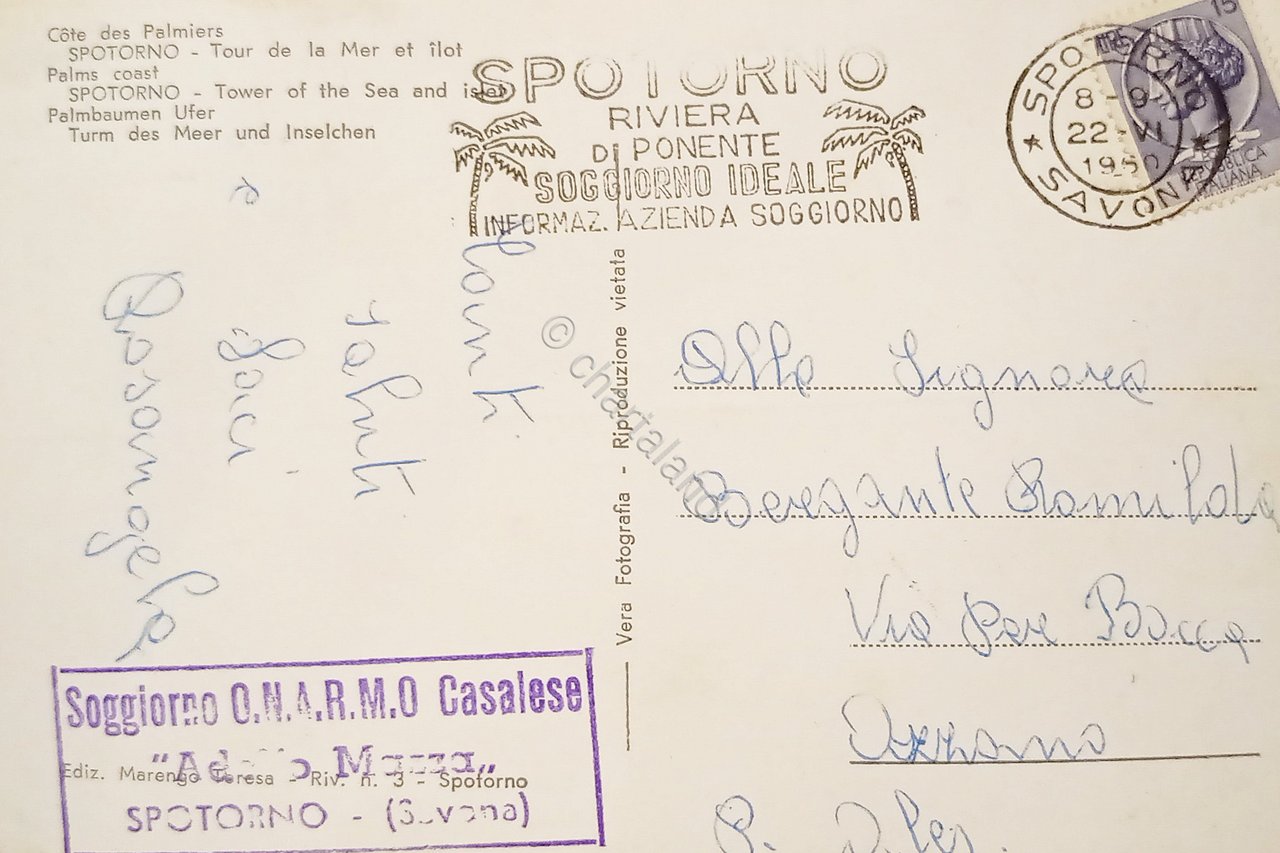 Côte des Palmiers
SPOTORNO - Tour de la Mer et îlot
Palms coast
SPOTORNO - Tower of the Sea and islet
Palmbaumen Ufer
Turm des Meer und Inselchen
SPOTORNO
RIVIERA
DI PONENTE
SOGGIORNO IDEALE
INFORMAZ. AZIENDA SOGGIORNO
SPOTORNO
8 - 9
22 - VI
SAVONA
15
REPUBBLICA
ITALIANA
Tanti
saluti
e
baci
Rosangela
Vera Fotografia - Riproduzione vietata
© chartaland
Alla Signora
Beregante Romilda
Via Per Bocca
Ozzano
Soggiorno O.N.A.R.M.O Casalese
Ediz. Marengo Teresa - Riv. n. 3 - Spotorno
SPOTORNO - (Savona)